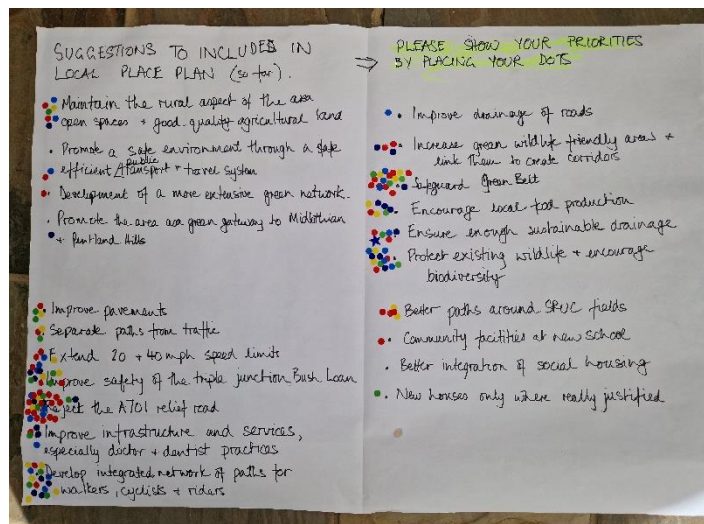 SUGGESTIONS TO INCLUDED IN
LOCAL PLACE PLAN (so far).
Maintain the rural aspect of the area
open spaces + good quality agricultural land
Promote a safe environment through a safe
efficient public transport + travel system
Development of a more extensive green network.
Promote the area as a green gateway to Midlothian
+ Pentland Hills
Improve pavements
Separate paths from traffic
Extend 20 + 40 mph speed limits
Improve safety of the triple junction Bush Loan
Reject the A701 relief road
Improve infrastructure and services,
especially doctor + dentist practices
Develop integrated network of paths for
walkers, cyclists + riders
⇒ PLEASE SHOW YOUR PRIORITIES
BY PLACING YOUR DOTS
Improve drainage of roads
Increase green wildlife friendly areas +
link them to create corridors
Safeguard Green Belt
Encourage local food production
Ensure enough sustainable drainage
Protect existing wildlife + encourage
biodiversity
Better paths around SRUC fields
Community facilities at new school
Better integration of social housing
New houses only where really justified